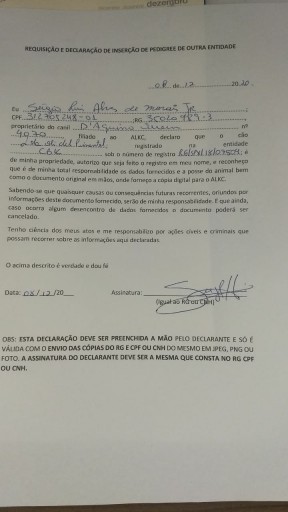 dezergoro
REQUISIÇÃO E DECLARAÇÃO DE INSERÇÃO DE PEDIGREE DE OUTRA ENTIDADE
08 de 12 2020.
Eu Sérgio Rui Alves de Morais Jr
CPF RG
proprietário do canil D'Aquino nº
4970 filiado ao ALKC, declaro que o cão
registrado na entidade
CBK sob o número de registro e
de minha propriedade, autorizo que seja feito o registro em meu nome, e reconheço
que é de minha total responsabilidade os dados fornecidos e a posse do animal bem
como o documento original em mãos, onde forneço a copia digital para o ALKC.
Sabendo-se que quaisquer causas ou consequências futuras recorrentes, oriundos por
informações deste documento fornecido, serão de minha responsabilidade. E que ainda,
caso ocorra algum desencontro de dados fornecidos o documento poderá ser
cancelado.
Tenho ciência dos meus atos e me responsabilizo por ações cíveis e criminais que
possam recorrer sobre as informações aqui declaradas.
O acima descrito é verdade e dou fé
Data: 08/12/20 Assinatura:
(Igual ao RG ou CNH)
OBS: ESTA DECLARAÇÃO DEVE SER PREENCHIDA A MÃO PELO DECLARANTE E SÓ É
VÁLIDA COM O ENVIO DAS CÓPIAS DO RG E CPF OU CNH DO MESMO EM JPEG, PNG OU
FOTO. A ASSINATURA DO DECLARANTE DEVE SER A MESMA QUE CONSTA NO RG CPF
OU CNH.